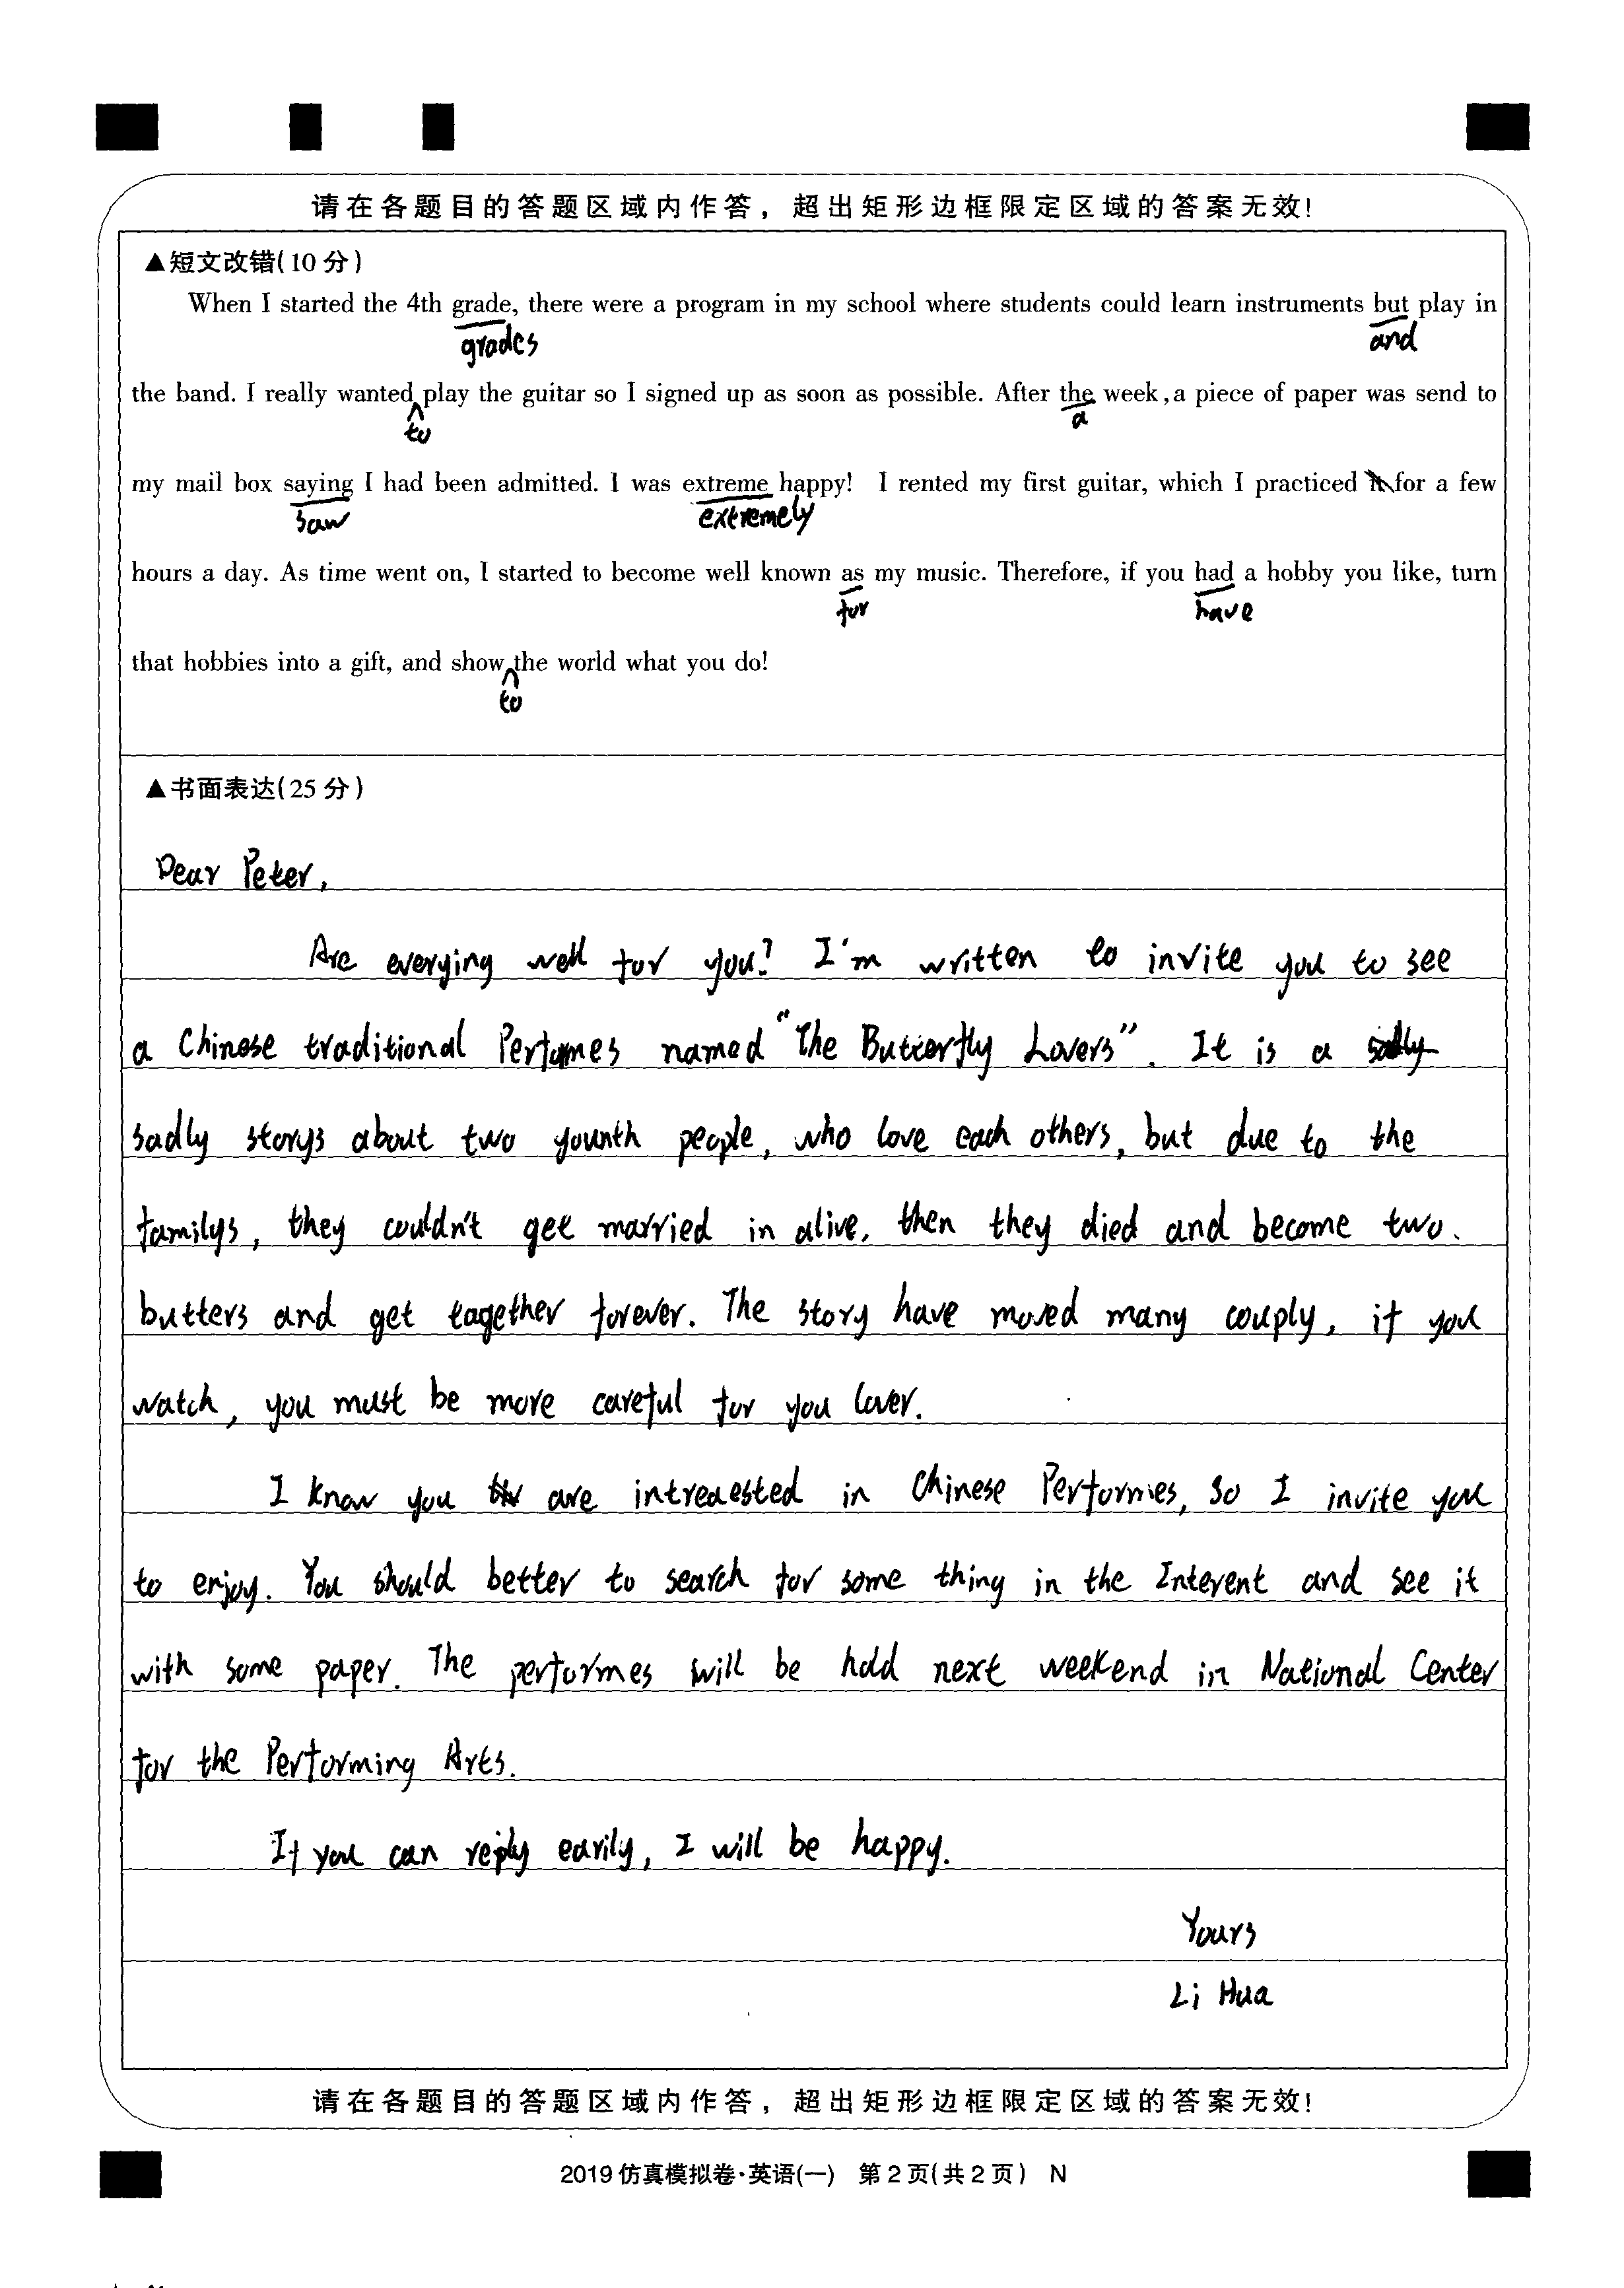 请在各题目的答题区域内作答，超出矩形边框限定区域的答案无效!
▲短文改错(10分)
When I started the 4th grade, there were a program in my school where students could learn instruments but play in
grades
and
the band. I really wanted play the guitar so I signed up as soon as possible. After the week,a piece of paper was send to
to
a
my mail box saying I had been admitted. I was extreme happy! I rented my first guitar, which I practiced it for a few
saw
extremely
hours a day. As time went on, I started to become well known as my music. Therefore, if you had a hobby you like, turn
for
have
that hobbies into a gift, and show the world what you do!
to
▲书面表达(25分)
Dear Peter,
Are everying well for you? I'm written to invite you to see
a Chinese traditional Perfumes named "The Butterfly Lovers". It is a sadly
sadly storys about two younth people, who love each others, but due to the
familys, they couldn't get married in alive, then they died and become two.
butters and get tagether forever. The story have moved many couply, if you
watch, you must be more careful for you lover.
I know you are intreaested in Chinese Performes, so I invite you
to enjoy. You should better to search for some thing in the Interent and see it
with some paper. The performes will be hold next weekend in National Center
for the Performing Arts.
If you can reply earily, I will be happy.
Yours
Li Hua
请在各题目的答题区域内作答，超出矩形边框限定区域的答案无效!
2019仿真模拟卷·英语(一) 第2页(共2页) N